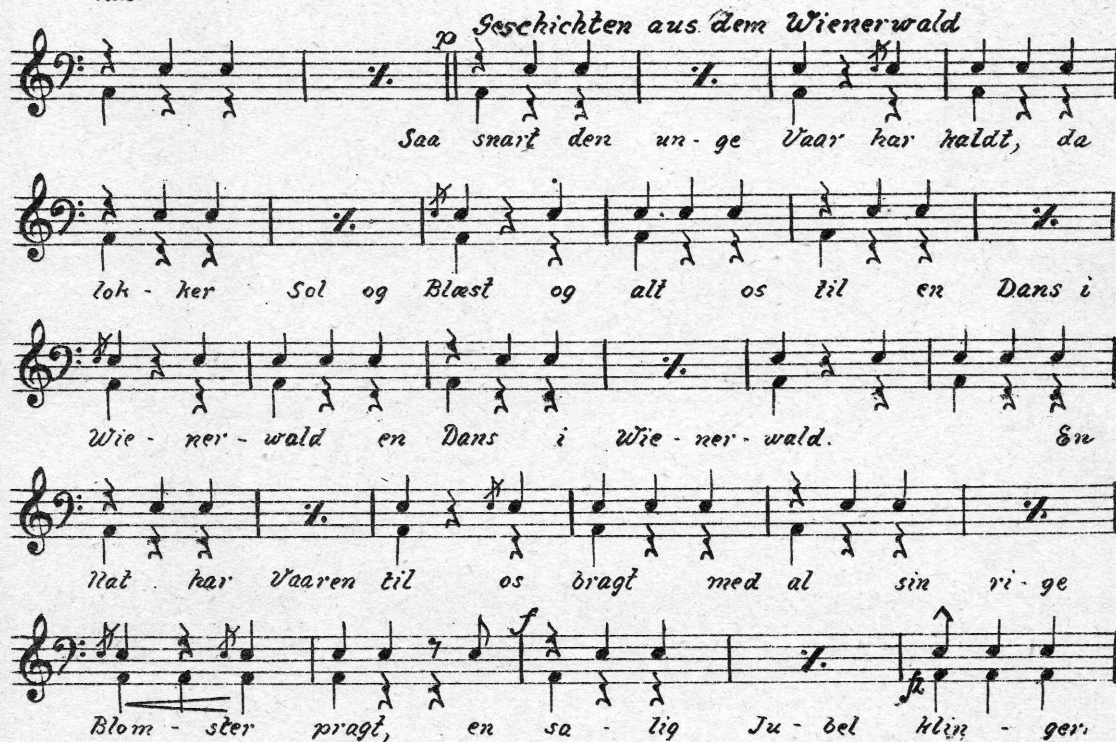 Geschichten aus dem Wienerwald
p
Saa snart den un-ge Vaar har kaldt, da
lok-ker Sol og Blæst og alt os til en Dans i
Wie-ner-wald en Dans i Wie-ner-wald. En
Nat har Vaaren til os bragt med al sin ri-ge
f
fz
Blom-ster pragt, en sa-lig Ju-bel klin-ger: